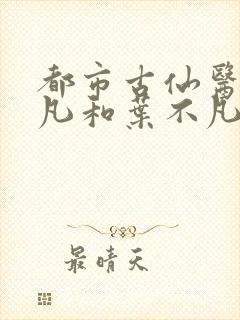 都市古仙醫
凡和葉不凡
最晴天